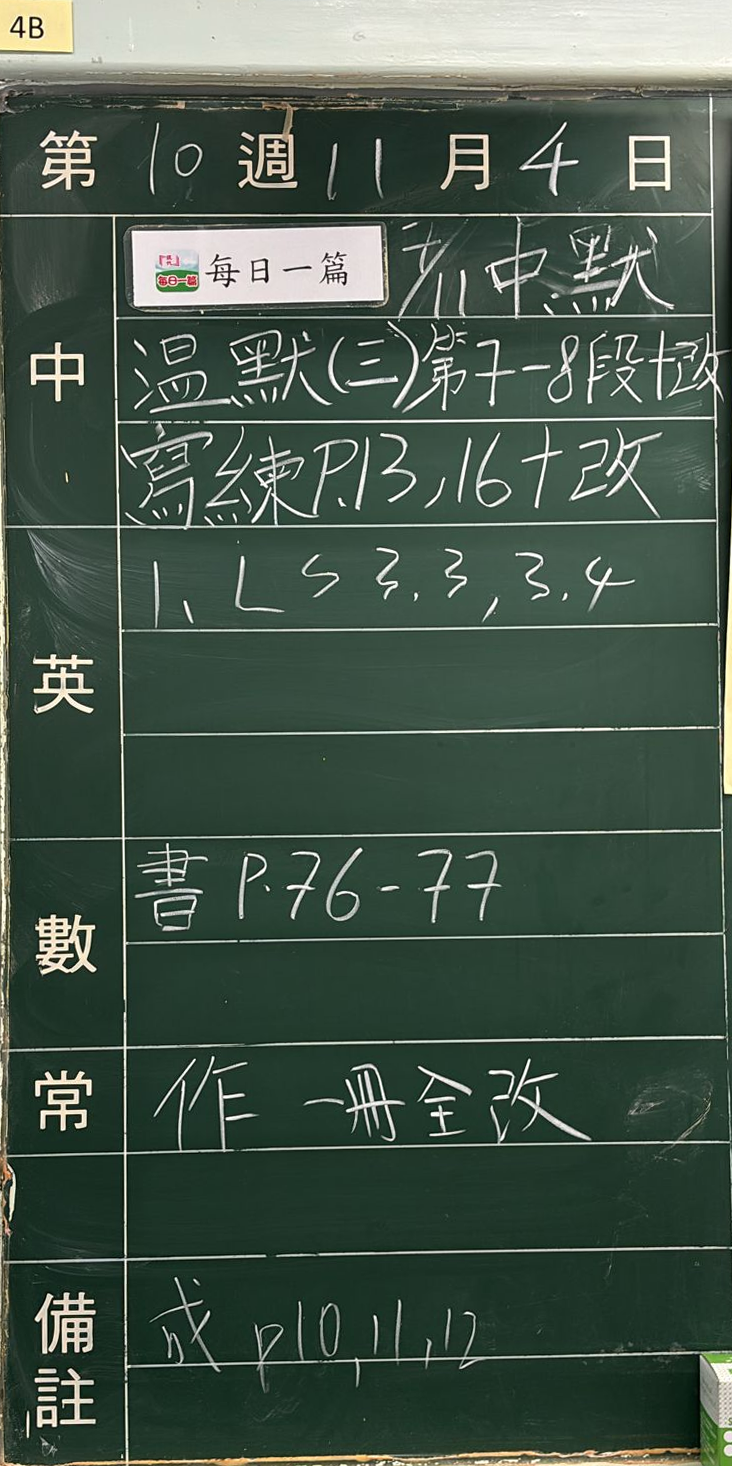 4B
第10週11月4日
中
每日一篇 7/11中默
溫默(三)第7-8段+改
寫練P.13,16+改
英
1、LS 3.3,3.4
數
書P.76-77
常
作一冊全改
備註
成p10,11,12